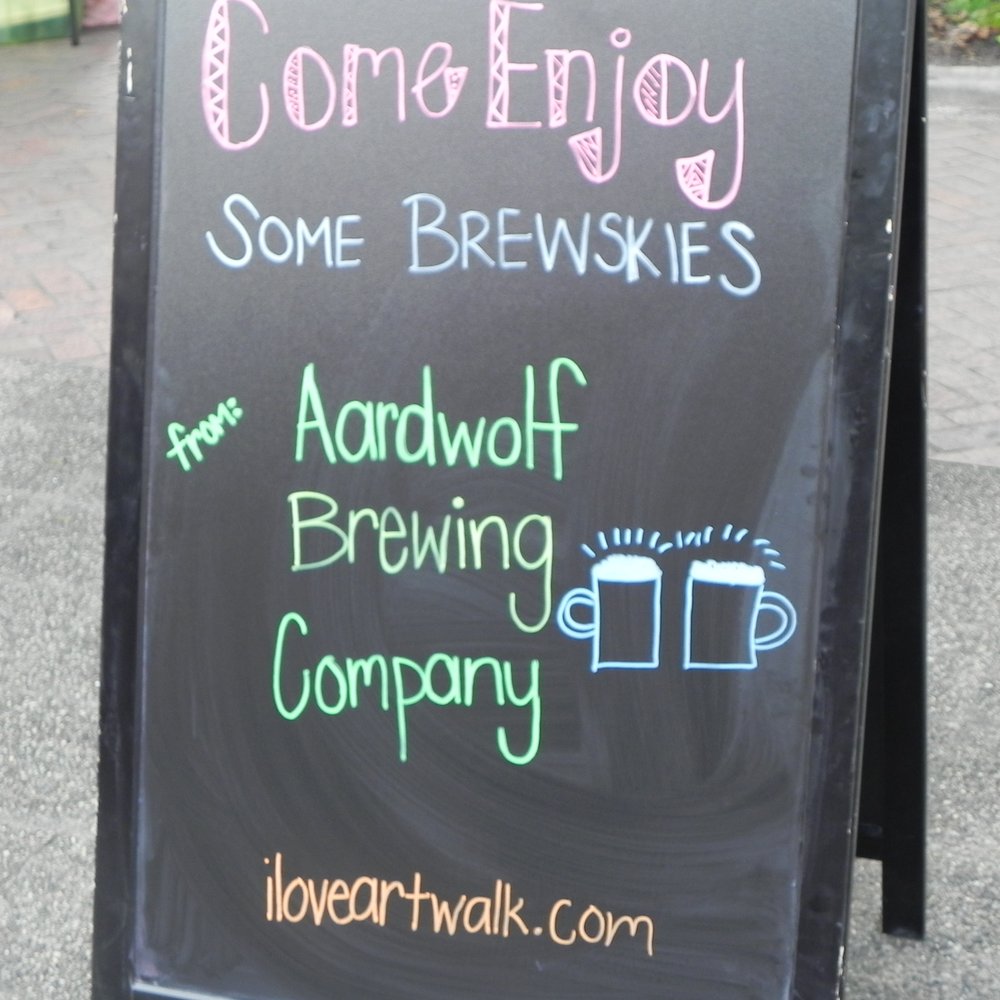 Come Enjoy
SOME BREWSKIES
from: Aardwolf
Brewing
Company
iloveartwalk.com